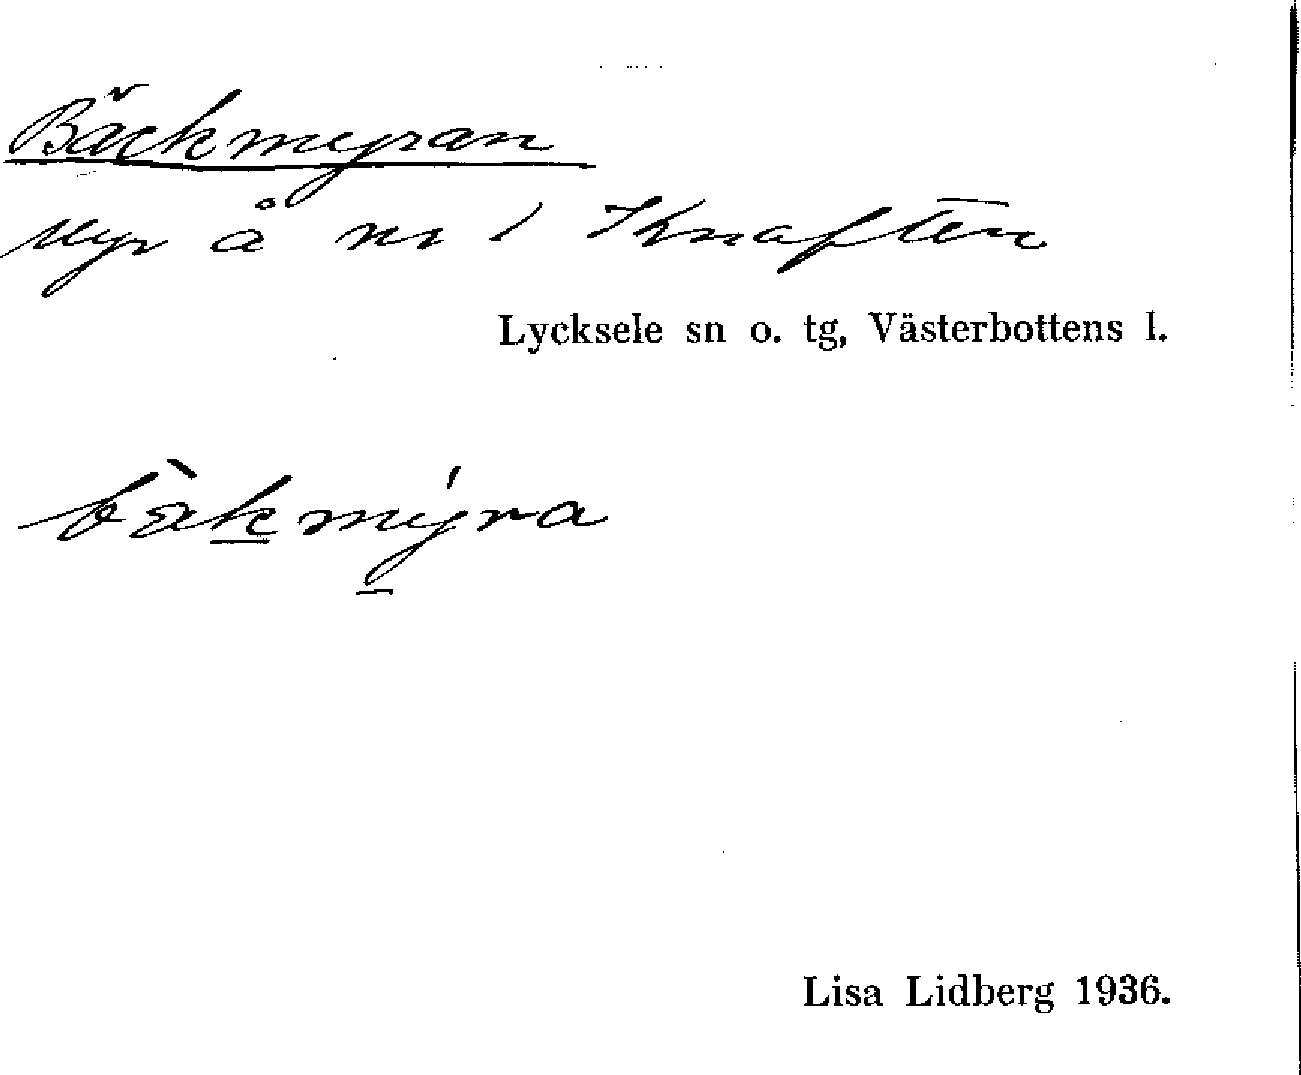 Bäckmyran
Myr å nr 1 Knaften
Lycksele sn o. tg, Västerbottens l.
bäkmyra
Lisa Lidberg 1936.